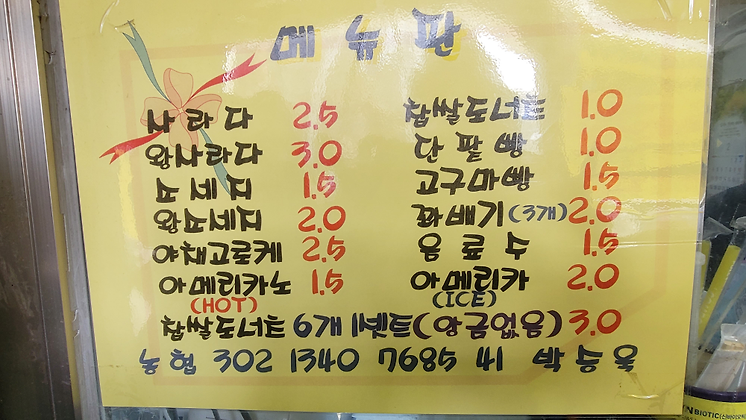 메뉴판
사라다 2.5 찹쌀도너츠 1.0
왕사라다 3.0 단팥빵 1.0
쏘세지 1.5 고구마빵 1.5
왕쏘세지 2.0 꽈배기(3개) 2.0
야채고로케 2.5 음료수 1.5
아메리카노 1.5 아메리카 2.0
(HOT) (ICE)
찹쌀도너츠 6개 1셋트(앙금없음) 3.0
농협 302 1340 7685 41 박승욱
BIOTIC